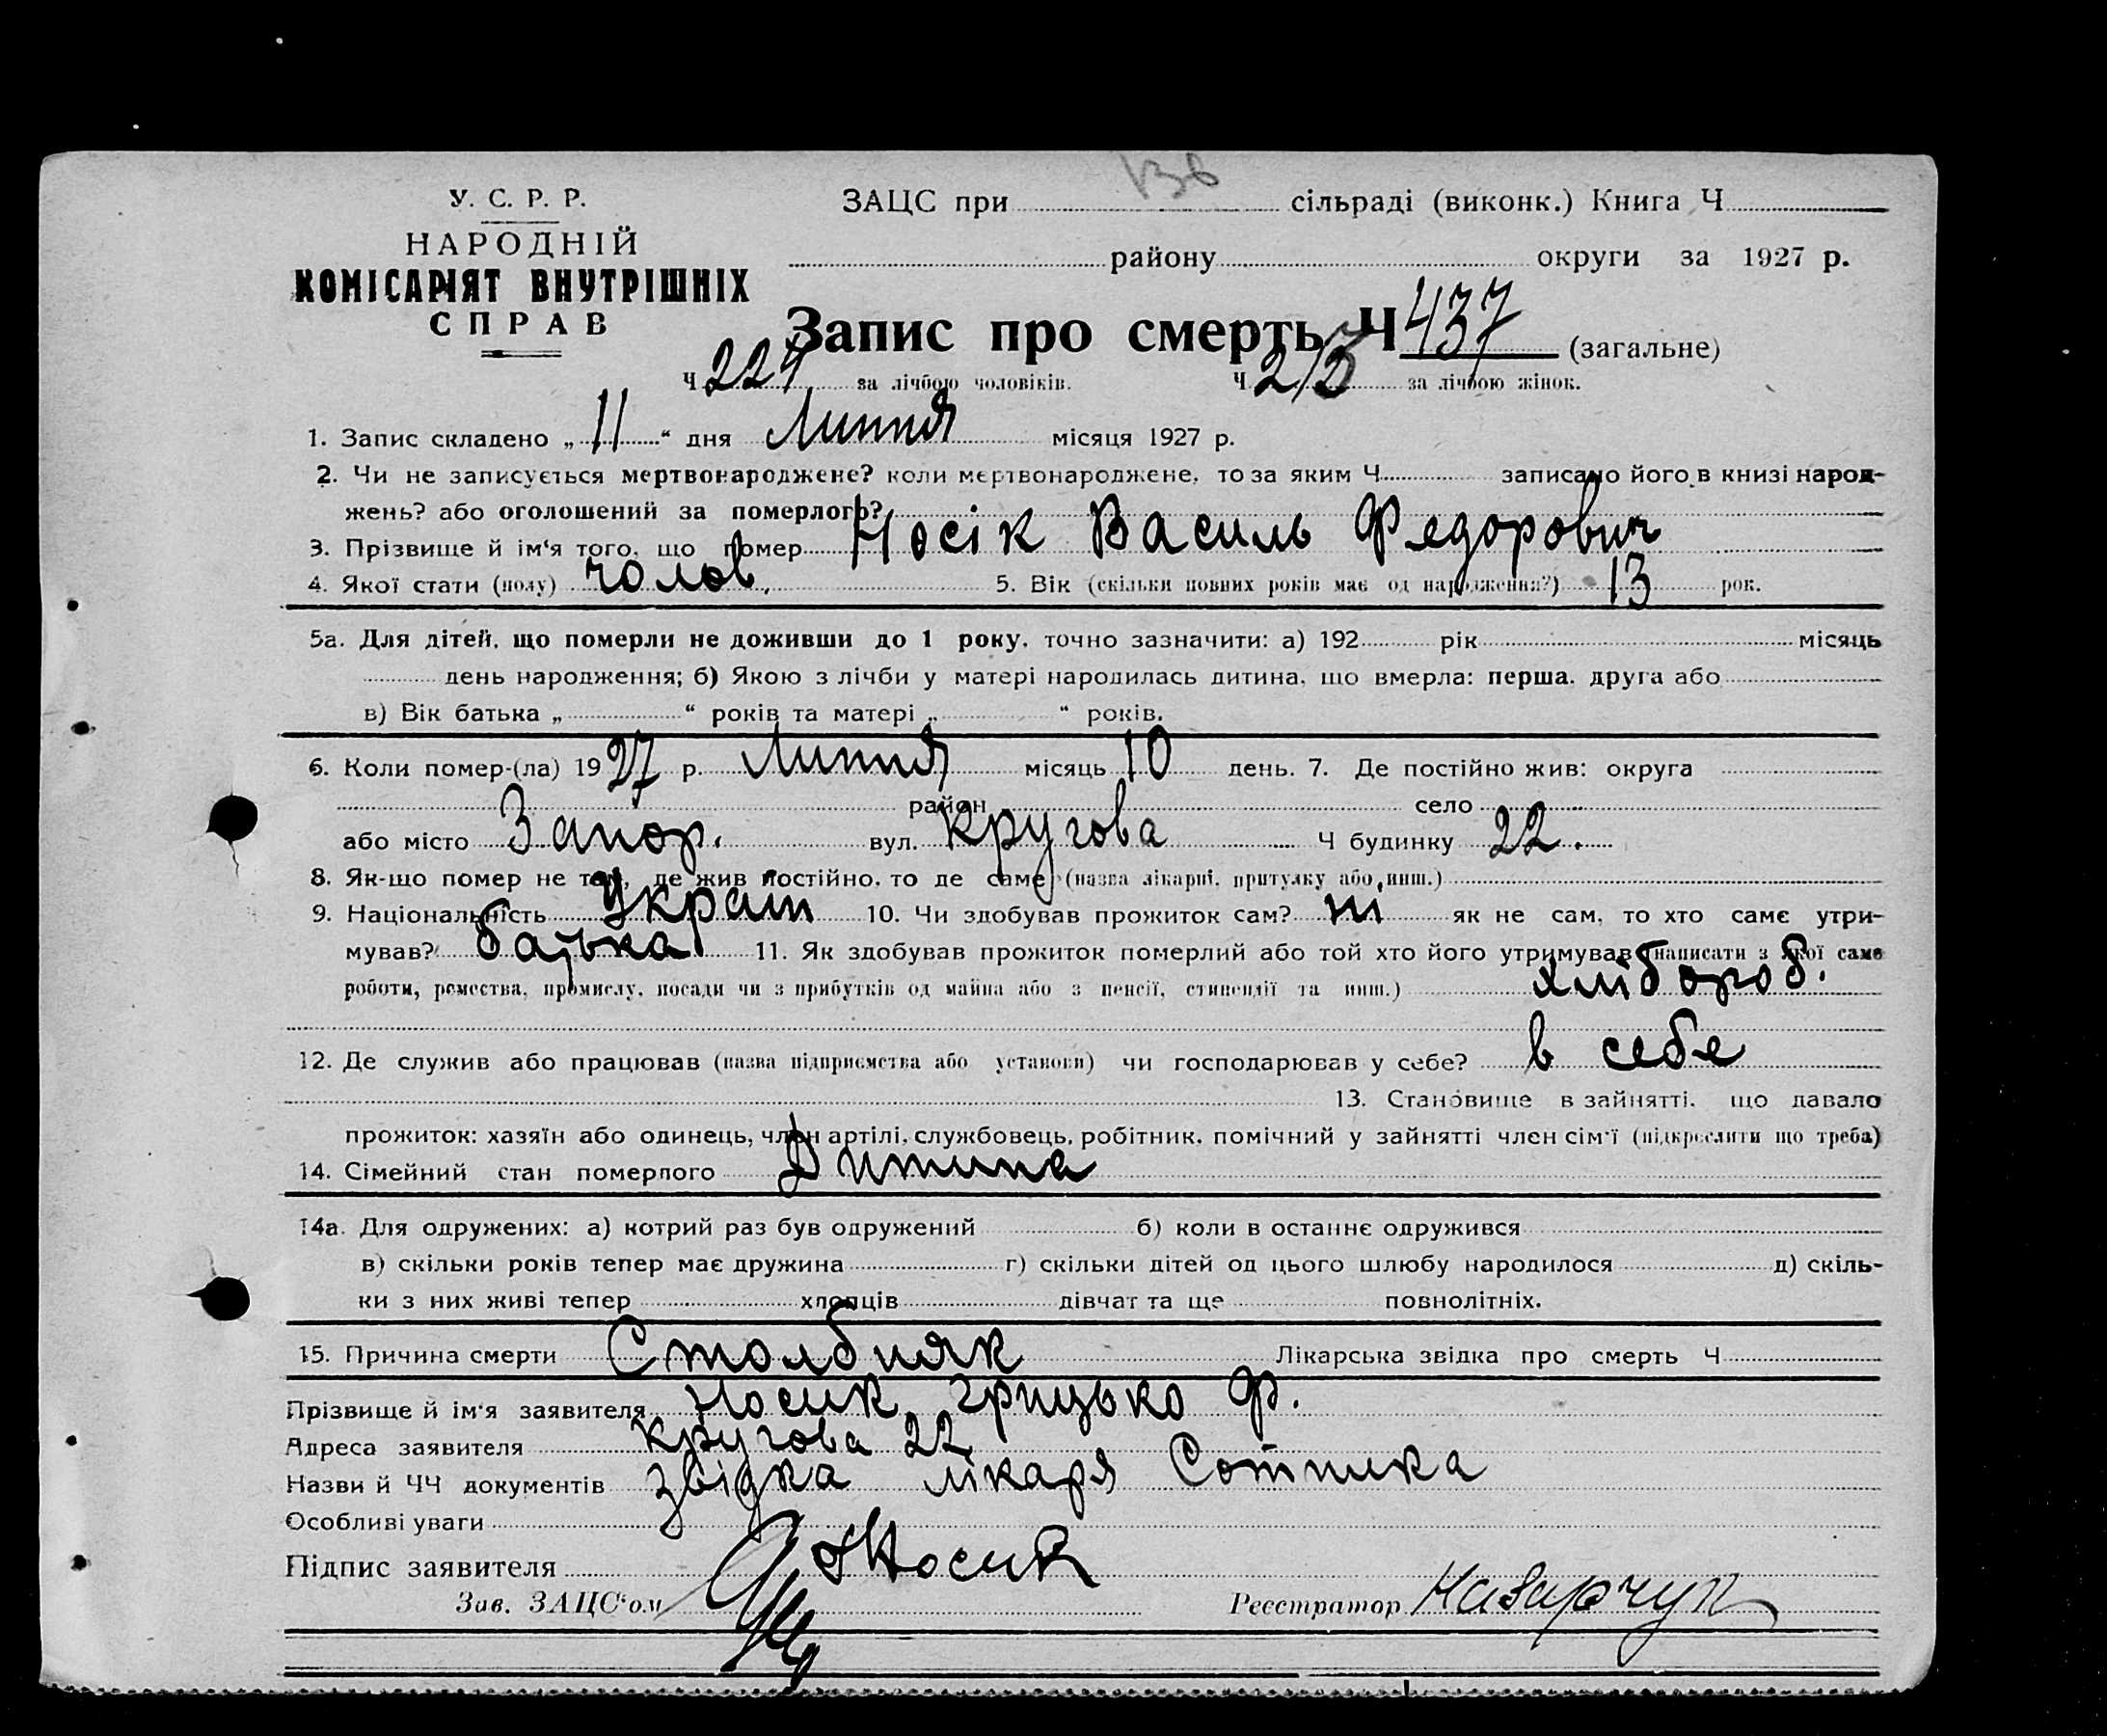 136
У. С. Р. Р.
ЗАЦС при сільраді (виконк.) Книга Ч
НАРОДНІЙ
району округи за 1927 р.
КОМІСАРІЯТ ВНУТРІШНІХ
СПРАВ
Запис про смерть Ч 437 (загальне)
Ч 224 за лічбою чоловіків. Ч 213 за лічбою жінок.
1. Запис складено „ 11 “ дня Липня місяця 1927 р.
2. Чи не записується мертвонароджене? коли мертвонароджене, то за яким Ч записано його в книзі народ-
жень? або оголошений за померлого?
3. Прізвище й ім‘я того, що помер Носік Василь Федорович
4. Якої стати (полу) чолов. 5. Вік (скільки повних років має од народження?) 13 рок.
5а. Для дітей, що померли не доживши до 1 року, точно зазначити: а) 192 рік місяць
день народження; б) Якою з лічби у матері народилась дитина, що вмерла: перша, друга або
в) Вік батька „ “ років та матері „ “ років.
6. Коли помер-(ла) 1927 р. Липня місяць 10 день. 7. Де постійно жив: округа
район село
або місто Запор. вул. Кругова Ч будинку 22.
8. Як-що помер не там, де жив постійно, то де саме (назва лікарні, притулку або инш.)
9. Національність Україн 10. Чи здобував прожиток сам? ні як не сам, то хто саме утри-
мував? батька 11. Як здобував прожиток померлий або той хто його утримував (написати з якої саме
роботи, ремества, промислу, посади чи з прибутків од майна або з пенсії, стипендії та инш.) хлібороб.
12. Де служив або працював (назва підприємства або установи) чи господарював у себе? в себе
13. Становище в зайнятті, що давало
прожиток: хазяїн або одинець, член артілі, службовець, робітник, помічний у зайнятті член сім‘ї (підкреслити що треба)
14. Сімейний стан померлого Дитина
14а. Для одружених: а) котрий раз був одружений б) коли в останнє одружився
в) скільки років тепер має дружина г) скільки дітей од цього шлюбу народилося д) скіль-
ки з них живі тепер хлопців дівчат та ще повнолітніх.
15. Причина смерти Столбняк Лікарська звідка про смерть Ч
Прізвище й ім‘я заявителя Носик Грицько Ф.
Адреса заявителя Кругова 22
Назви й ЧЧ документів звідка лікаря
Особливі уваги
Підпис заявителя Носик
Зав. ЗАЦС‘ом Реєстратор Назарчук